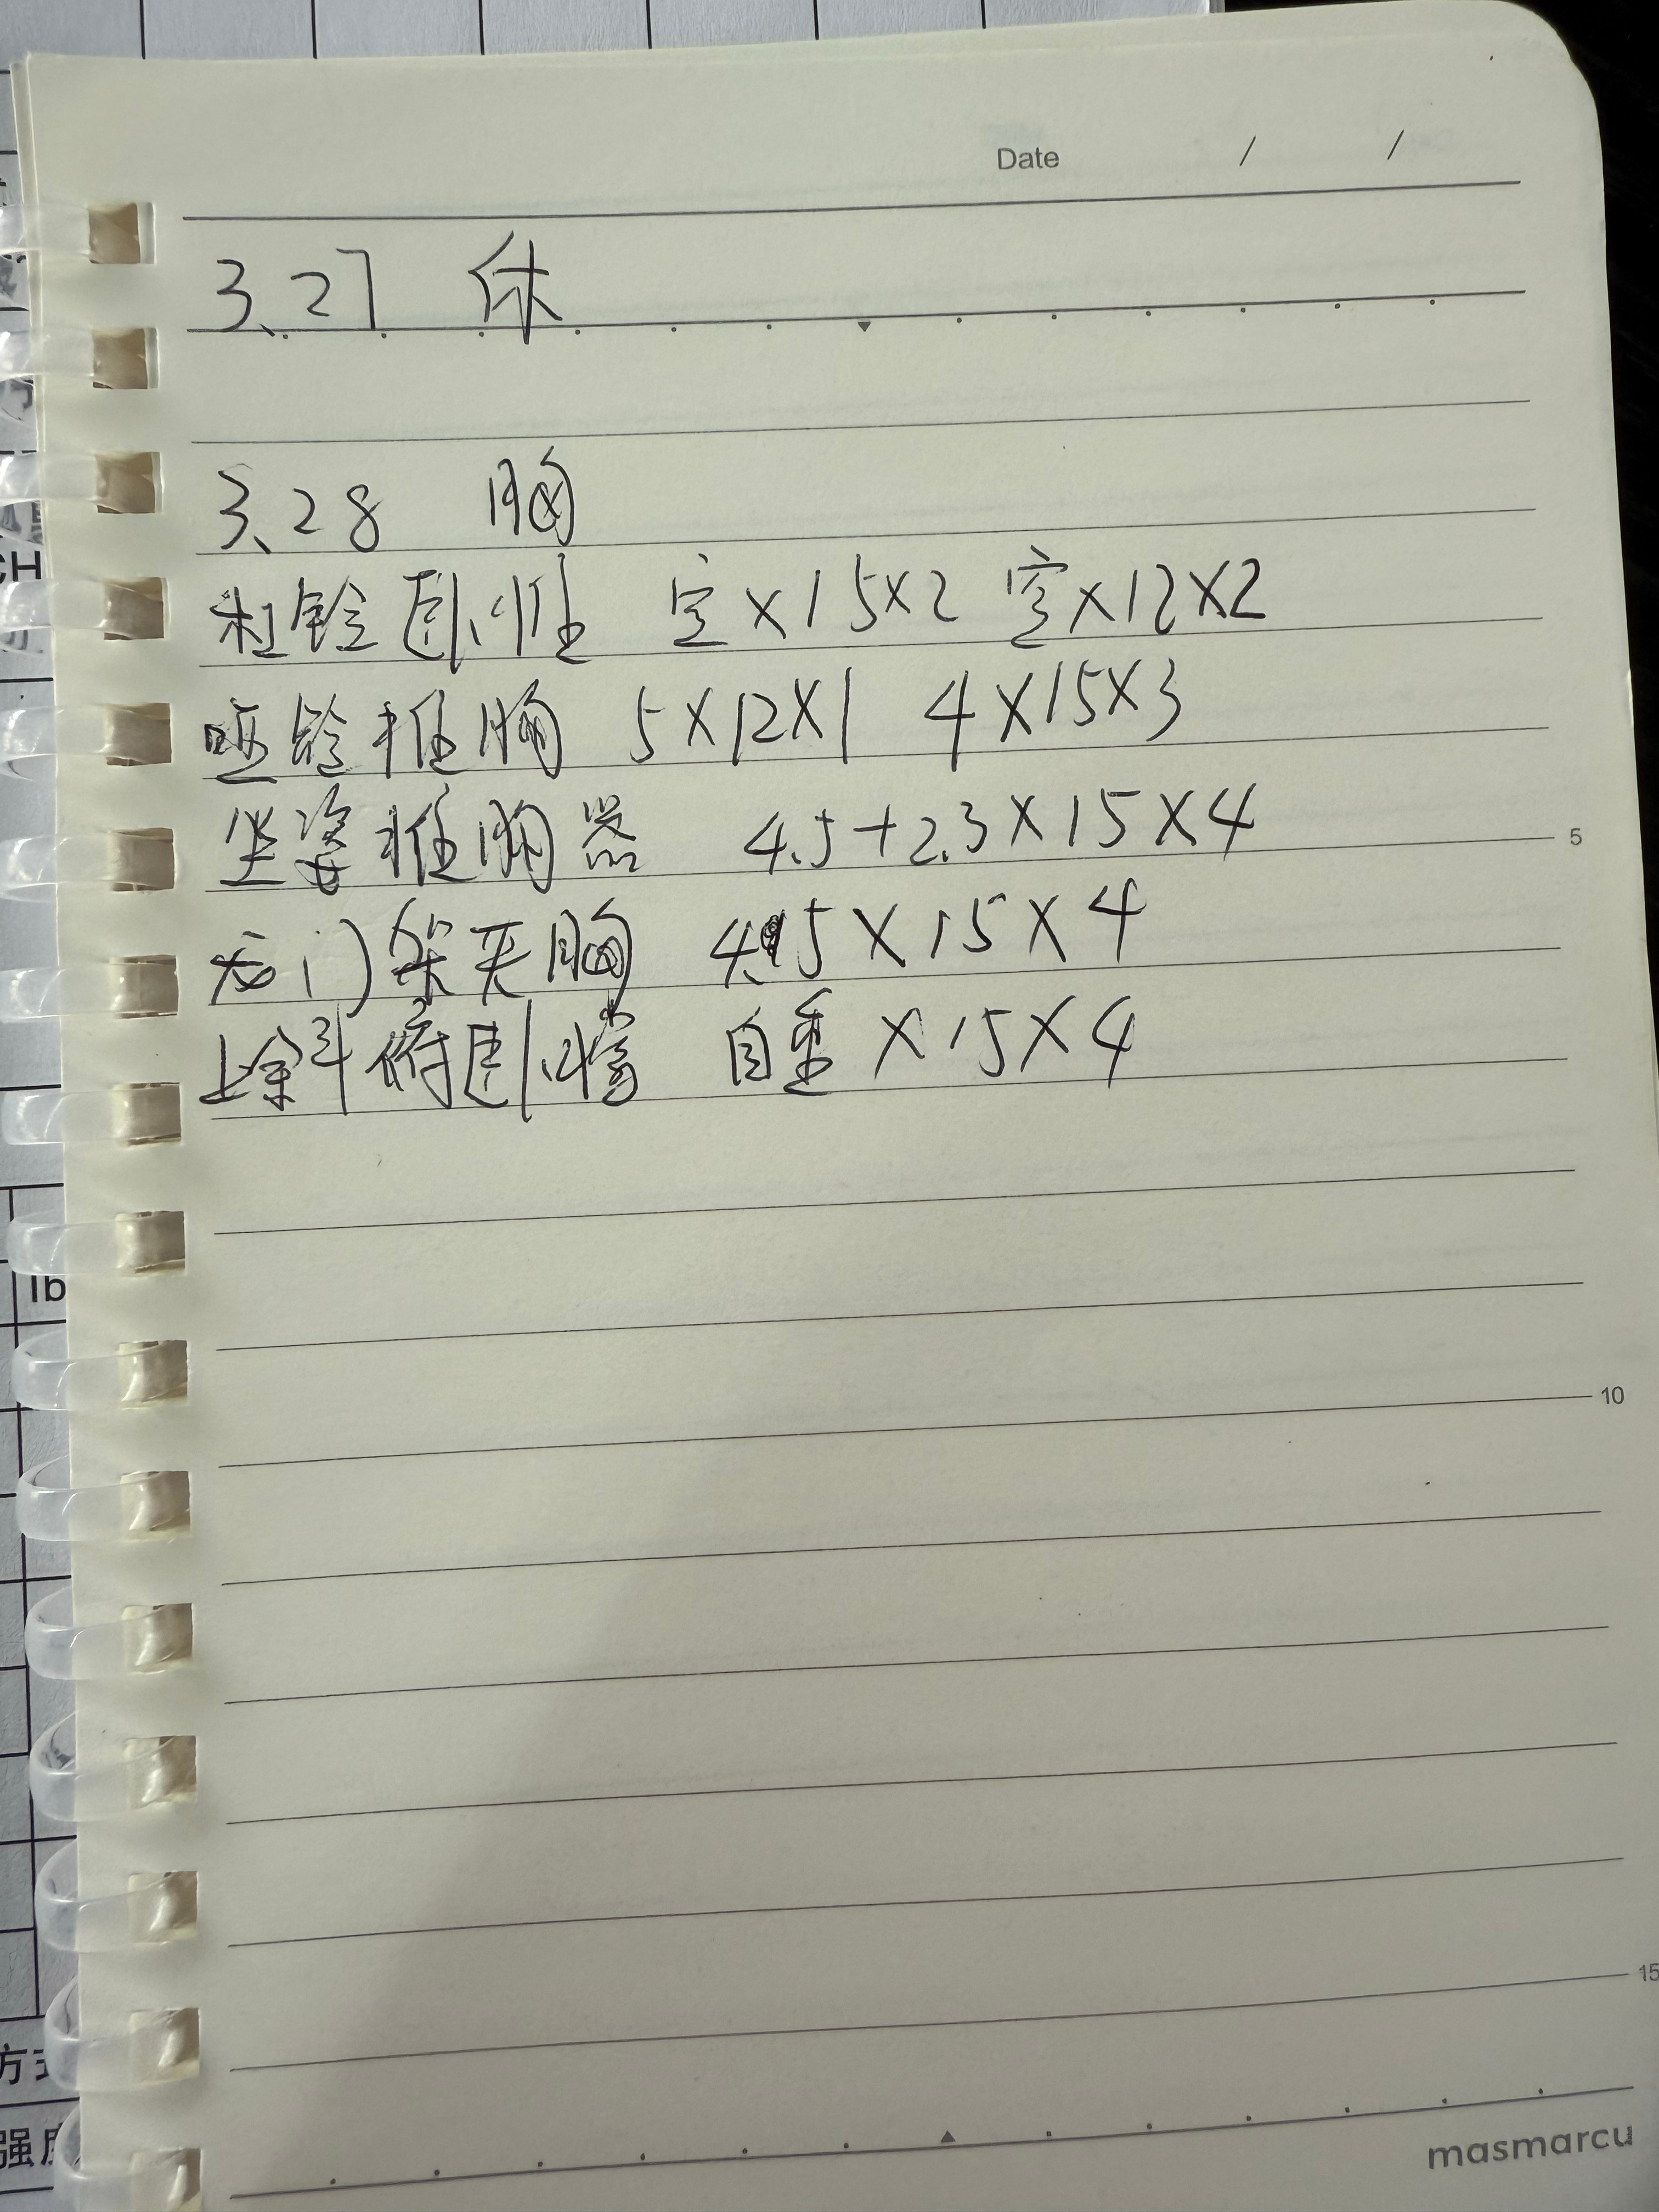 Date / /
3.27 休
3.28 胸
杠铃卧推 空×15×2 空×12×2
哑铃推胸 5×12×1 4×15×3
坐姿推胸器 4.5+2.3×15×4
5
龙门架夹胸 4.5×15×4
上斜俯卧撑 自重×15×4
10
15
masmarcu
CH
lb
方式
强度